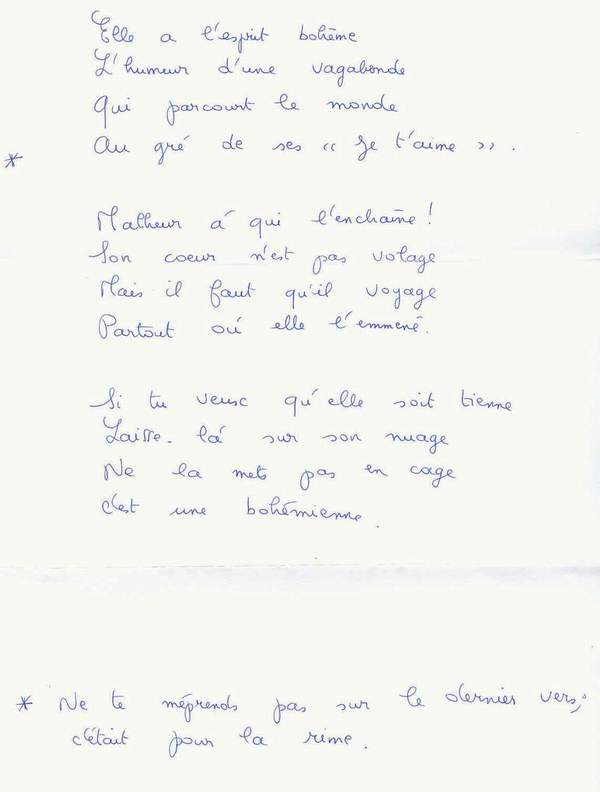 Elle a l'esprit bohême
L'humeur d'une vagabonde
Qui parcourt le monde
* Au gré de ses « Je t'aime ».
Malheur à qui l'enchaîne !
Son coeur n'est pas volage
Mais il faut qu'il voyage
Partout où elle l'emmenê.
Si tu veux qu'elle soit tienne
Laisse-là sur son nuage
Ne la mets pas en cage
c'est une bohémienne.
* Ne te méprends pas sur le dernier vers,
c'était pour la rime.